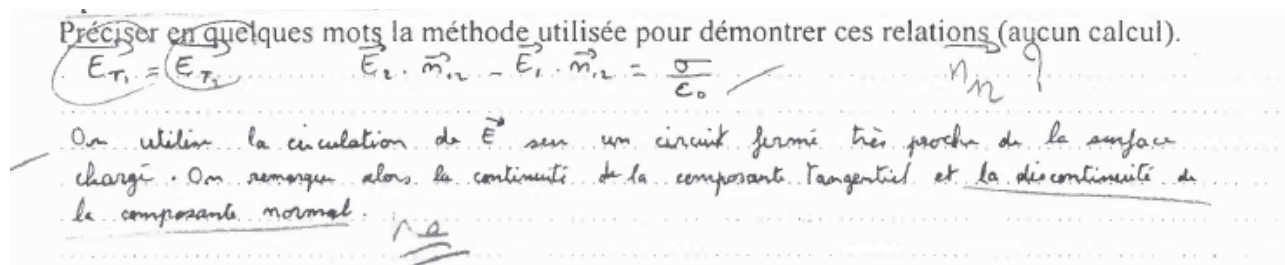 Préciser en quelques mots la méthode utilisée pour démontrer ces relations (aucun calcul).
E⃗_T₁ = E⃗_T₂ E⃗₂ . n⃗₁₂ - E⃗₁ . n⃗₁₂ = σ/ε₀ n⃗₁₂ ?
On utilise la circulation de E⃗ sur un circuit fermé très proche de la surface
chargé. On remarque alors la continuité de la composante tangentiel et la discontinuité de
la composante normal.